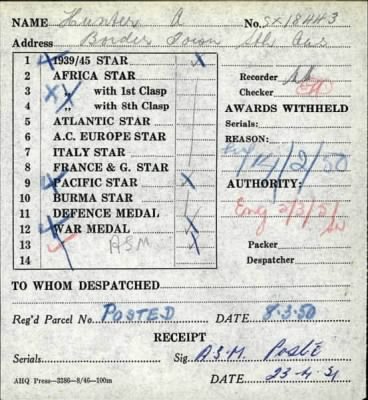 NAME Hunter A No. SX18443
Address Border Town Sth Aus
1 1939/45 STAR
2 AFRICA STAR
3 " with 1st Clasp
4 " with 8th Clasp
5 ATLANTIC STAR
6 A.C. EUROPE STAR
7 ITALY STAR
8 FRANCE & G. STAR
9 PACIFIC STAR X
10 BURMA STAR
11 DEFENCE MEDAL
12 WAR MEDAL
13 ASM
14
Recorder
Checker
AWARDS WITHHELD
Serials:
REASON:
14/2/50
AUTHORITY:
Eng 2/3/51
Packer
Despatcher
TO WHOM DESPATCHED
Reg'd Parcel No. POSTED DATE 8.3.50
RECEIPT
Serials Sig. A.S.M. Posted
DATE 23-4-51
AHQ Press—3386—8/46—100m